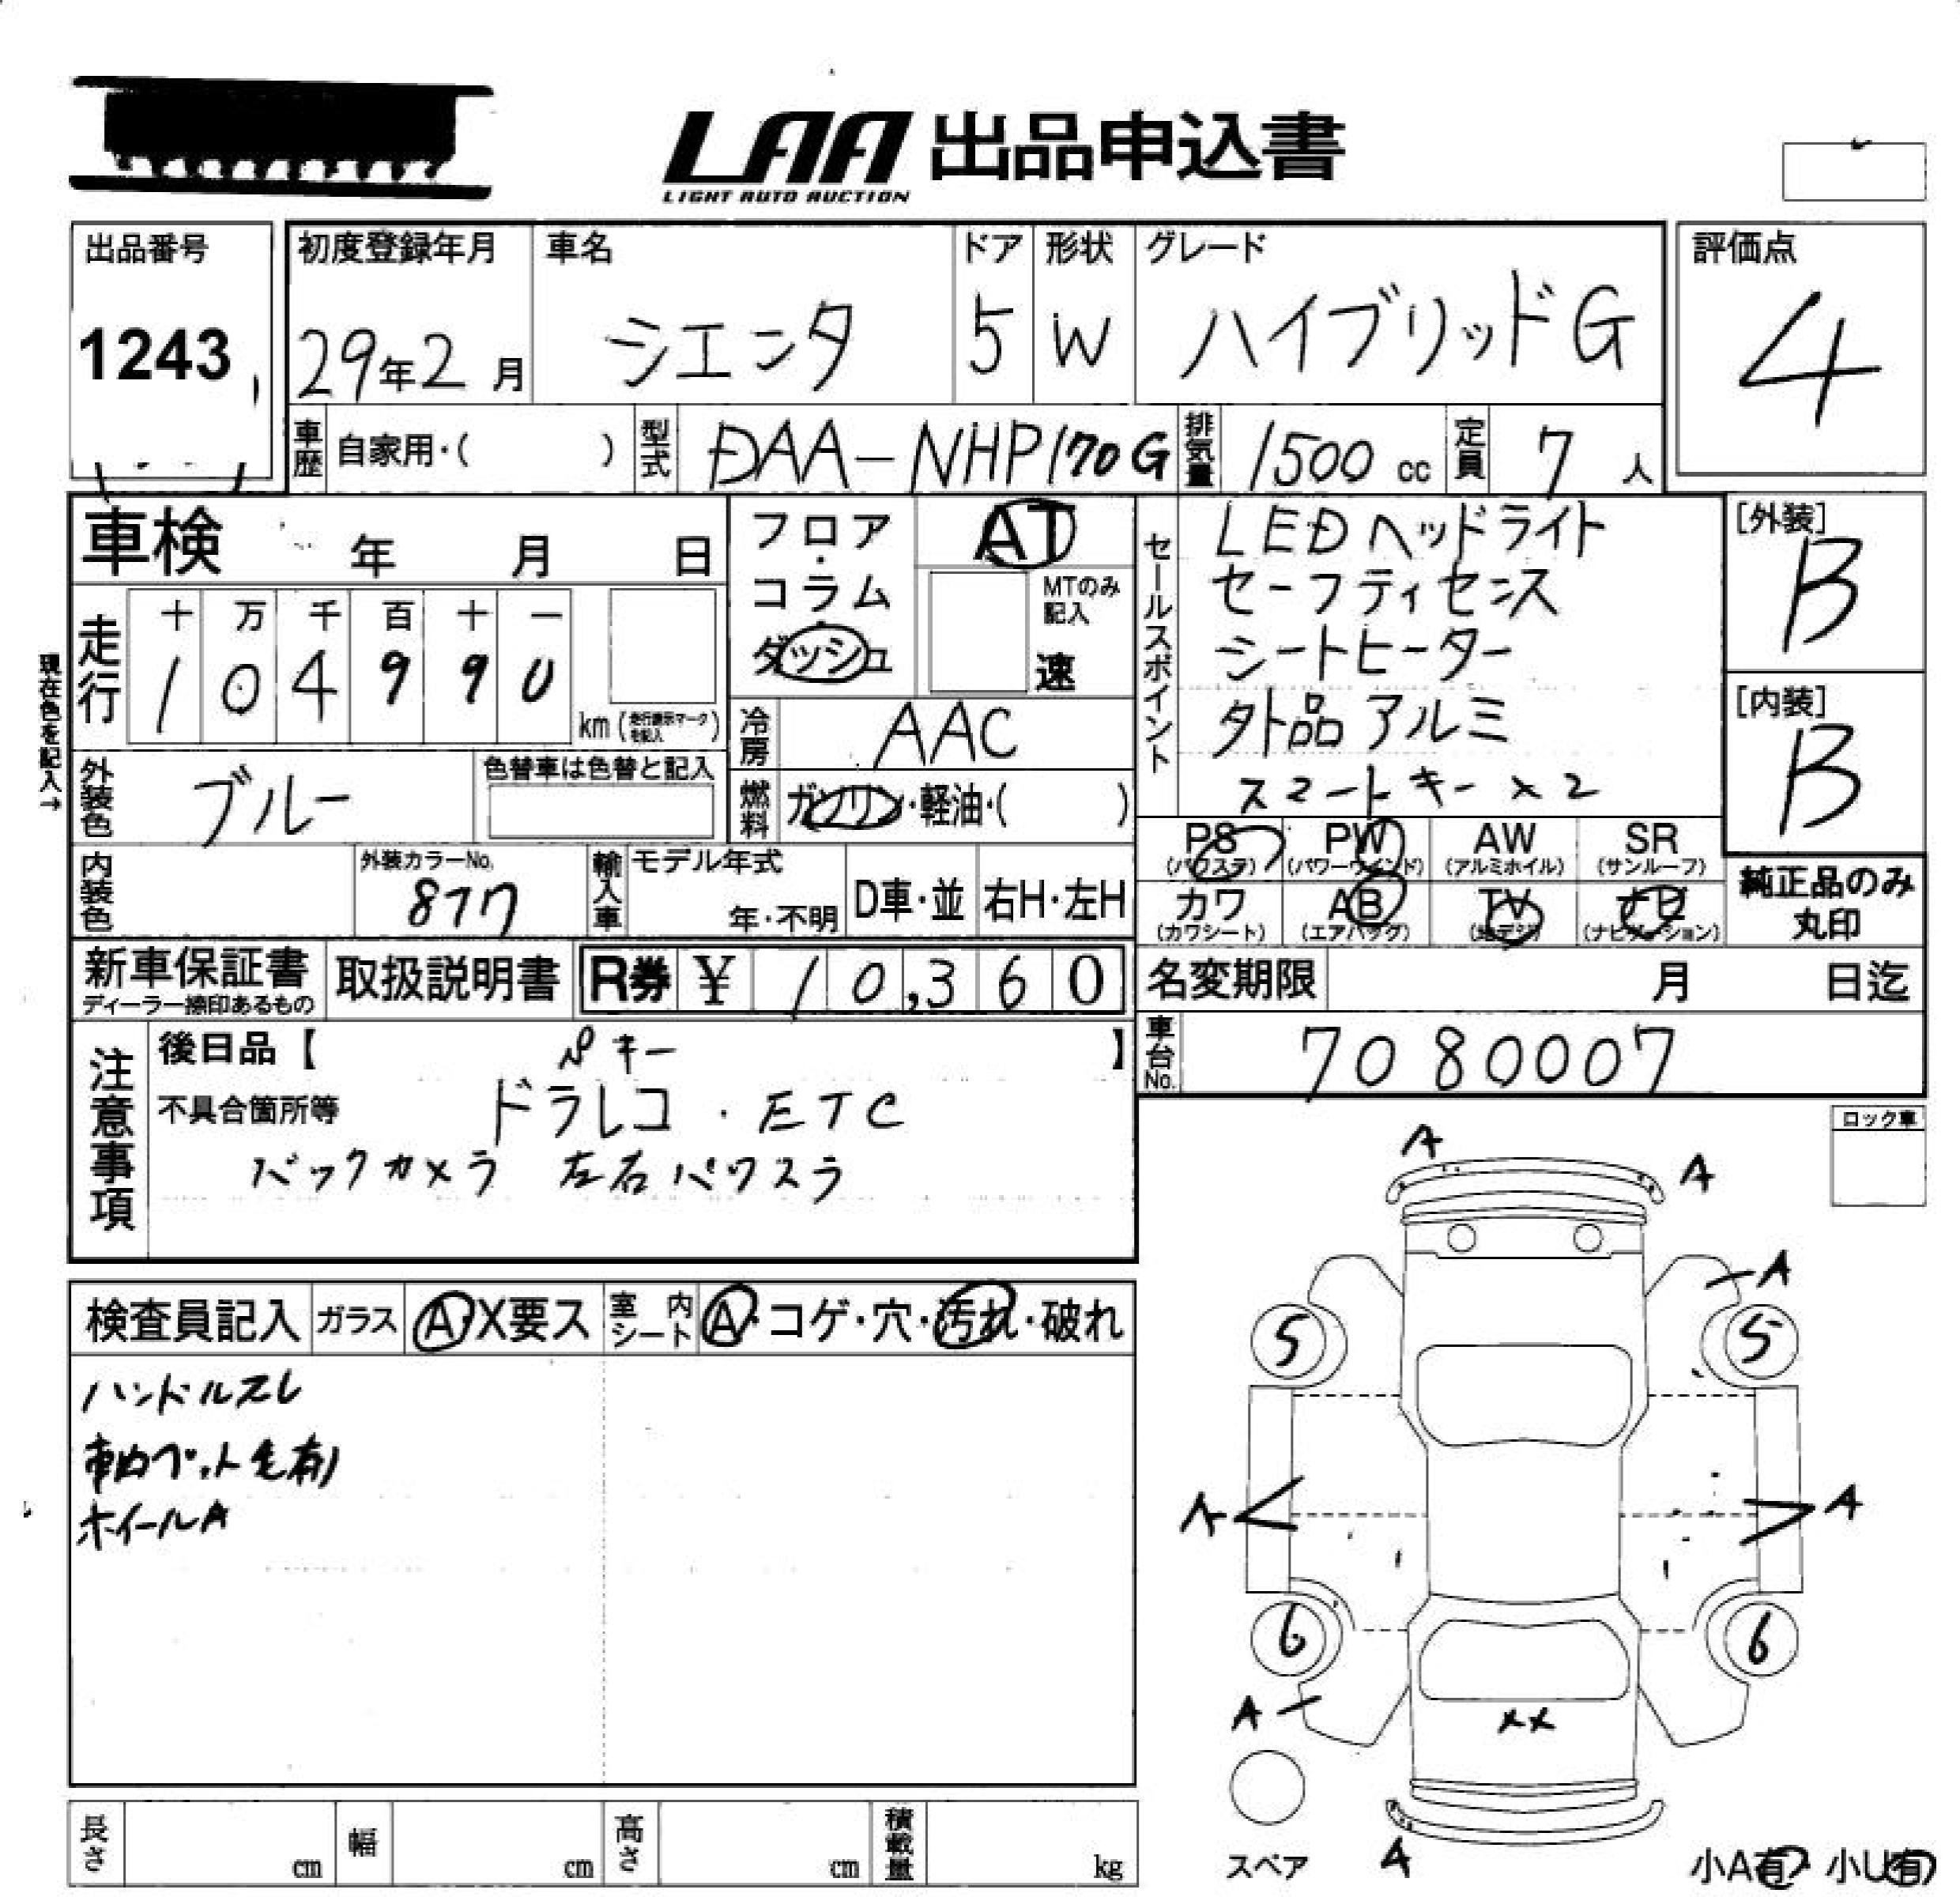 LAA 出品申込書
LIGHT AUTO AUCTION
出品番号
1243
初度登録年月
29年2月
車名
シエンタ
ドア
5
形状
W
グレード
ハイブリッドG
評価点
4
車歴 自家用・( )
型式 DAA-NHP170G
排気量 1500 cc
定員 7 人
車検 年 月 日
フロア・コラム・ダッシュ
AT
MTのみ記入
速
セールスポイント
LEDヘッドライト
セーフティセンス
シートヒーター
外品アルミ
スマートキー×2
[外装]
B
[内装]
B
現在色を記入→
走行
十 万 千 百 十 一
1 0 4 9 9 0
km (走行表示マークを記入)
冷房 AAC
外装色 ブルー
色替車は色替と記入
燃料 ガソリン・軽油・( )
PS (パワステ)
PW (パワーウインド)
AW (アルミホイル)
SR (サンルーフ)
カワ (カワシート)
AB (エアバッグ)
TV (地デジ)
ナビ (ナビゲーション)
純正品のみ
丸印
内装色
外装カラーNo.
877
輸入車
モデル年式
年・不明
D車・並
右H・左H
新車保証書
ディーラー捺印あるもの
取扱説明書
R券 ¥ 10,360
名変期限 月 日迄
車台No. 7080007
注意事項
後日品【 キー 】
不具合箇所等 ドラレコ・ETC
バックカメラ 左右パワスラ
ロック車
検査員記入
ガラス A・X要ス
室内シート A・コゲ・穴・汚れ・破れ
ハンドルスレ
車内ペット毛有
ホイールA
A
A
A
5
5
A
A
6
6
A
××
スペア
A
小A有・小U有
長さ cm
幅 cm
高さ cm
積載量 kg